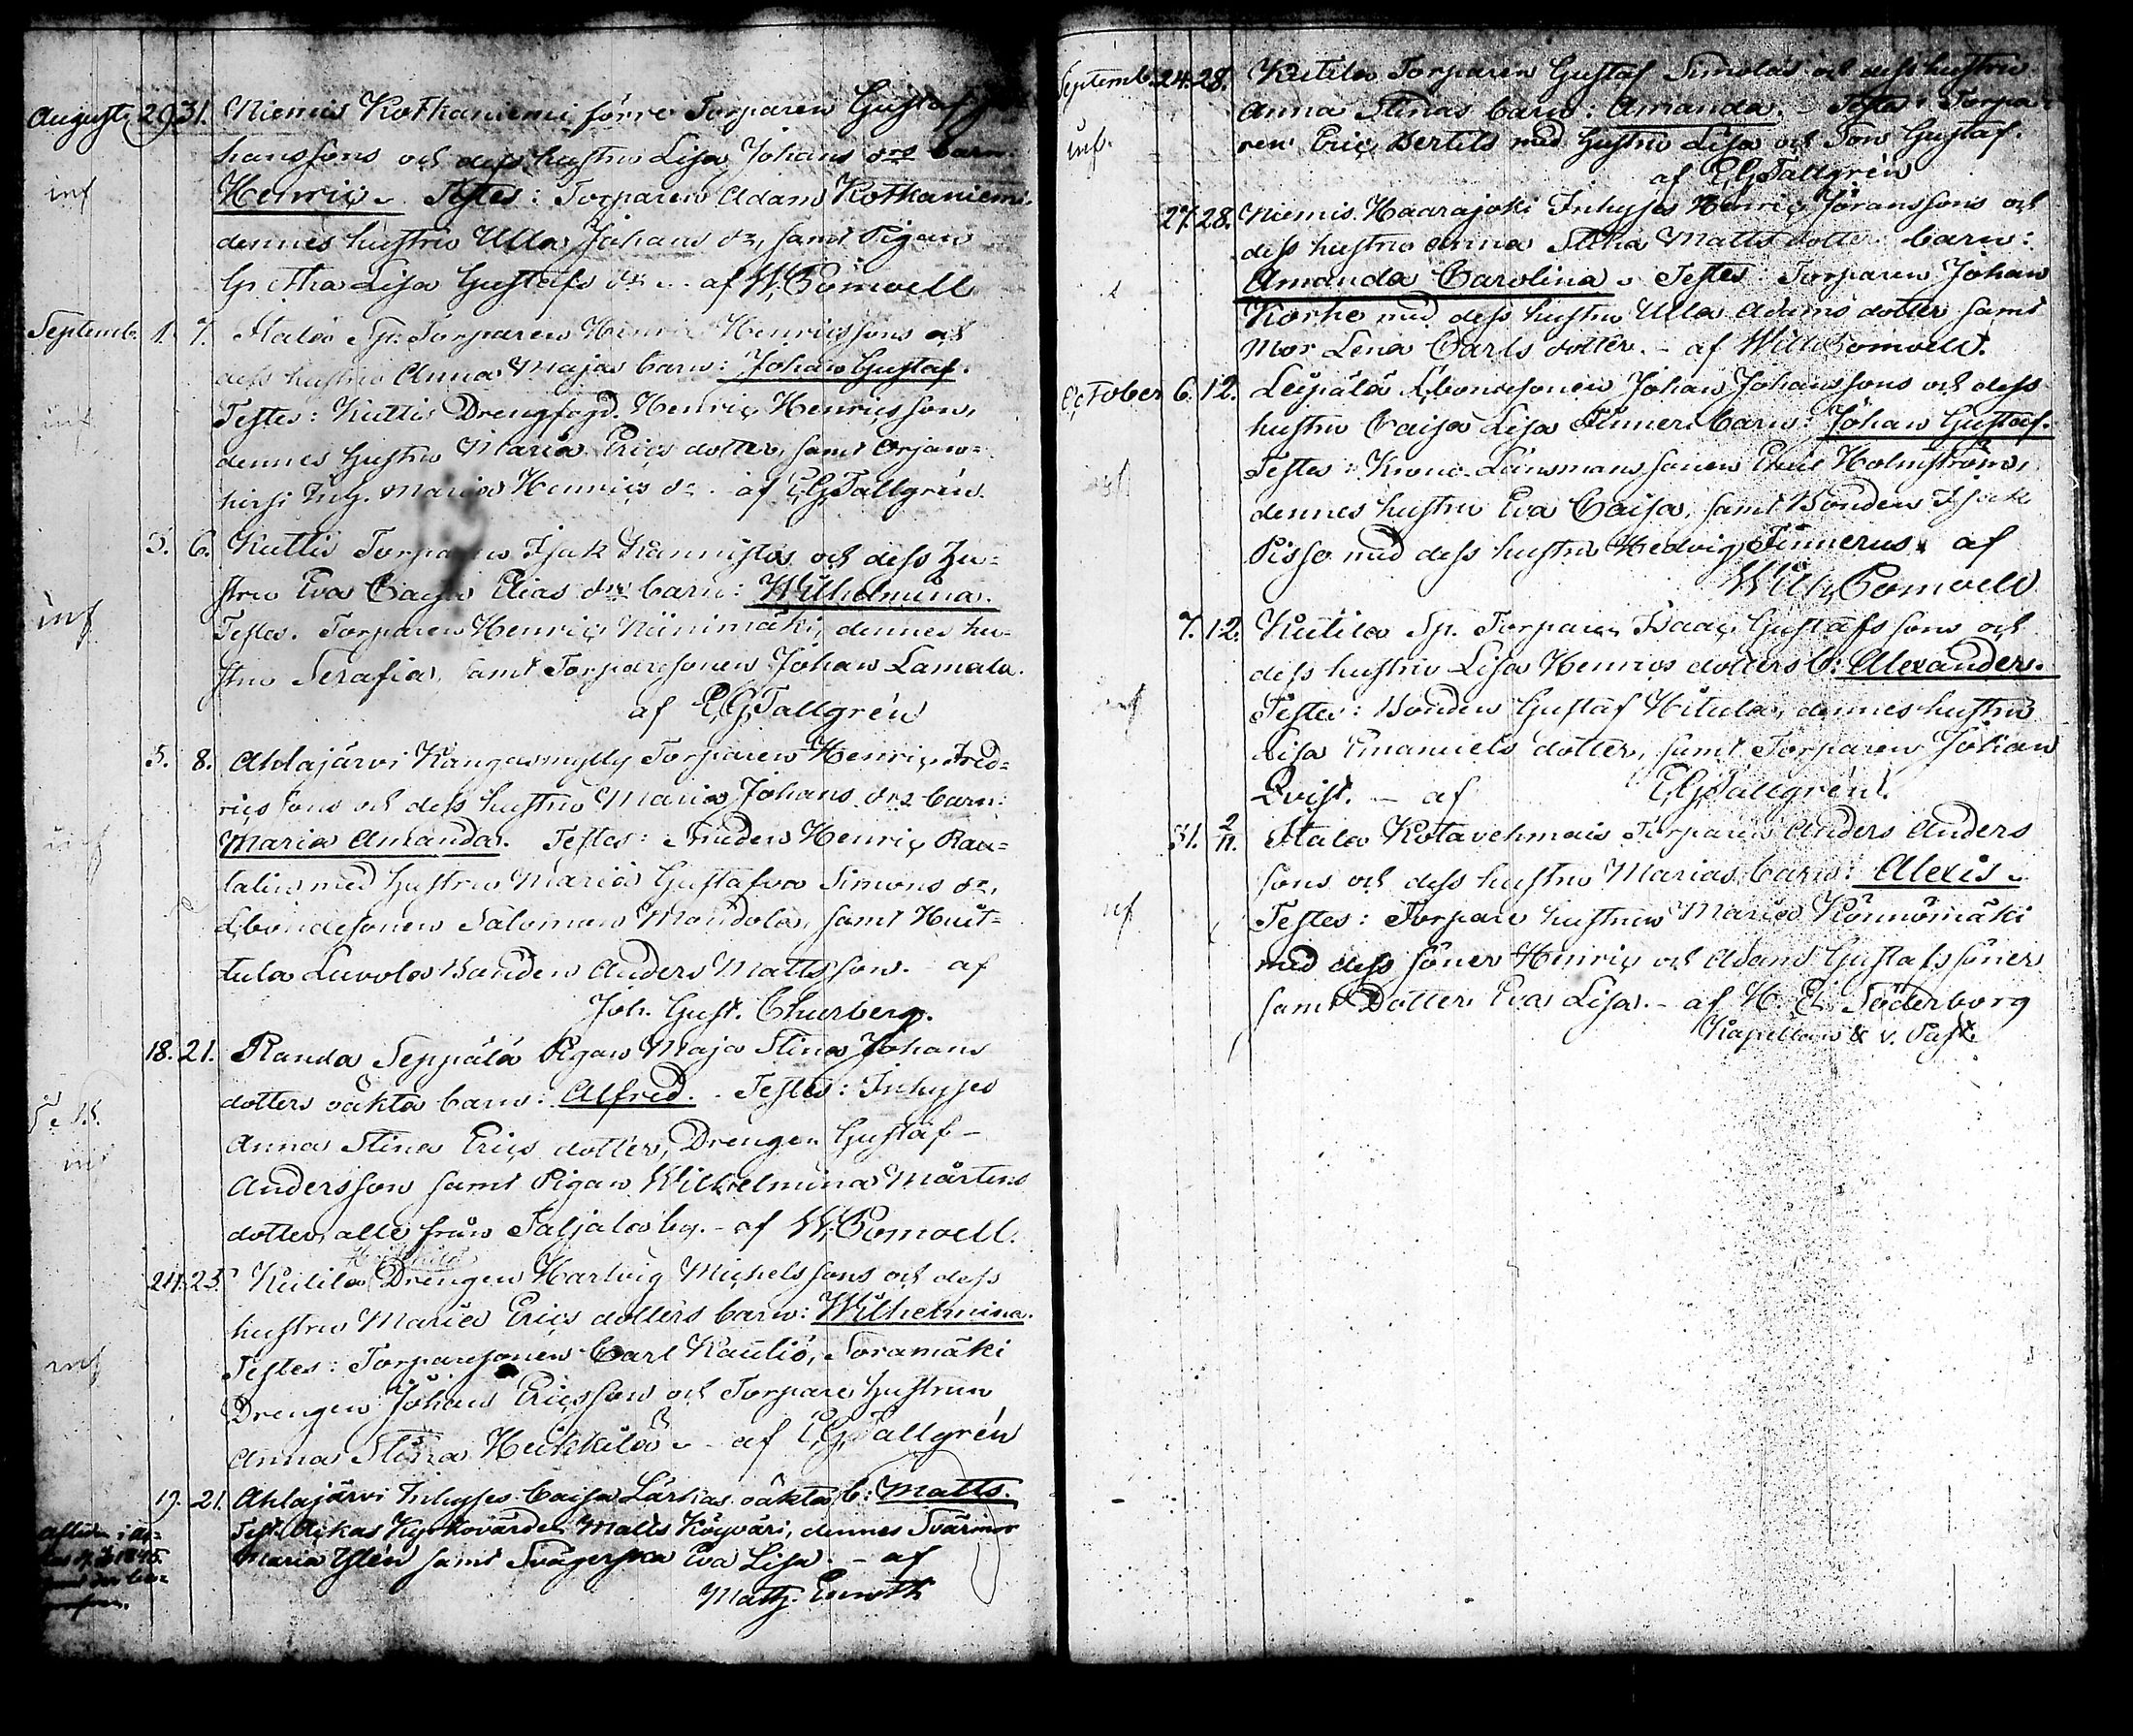 Augusti 29. 31. Niemis Kotkaniemi förre Torparen Gustaf Jo-
hanssons och dess hustru Lisa Johans drs barn:
inf Henric. Testes: Torparen Adam Kotkaniemi,
dennes hustru Ulla Johans dr, samt Pigan
Lisa Gustafs dr. - af W. Pomoell
Septemb. 1. 7. Stala Sp. Torparen Henric Henricssons och
dess hustru Anna Majas barn: Johan Gustaf.
inf Testes: Kuttis Drengfogd. Henric Henricsson,
dennes hustru Maria Erics dotter, samt Orjan-
hirsi Inh. Maria Henrics dr. af E,G,Tallgrén.
5. 6. Kuttis Torparen Isak Kannistos och dess hu-
stru Eva Caisa Elias drs barn: Wilhelmina.
inf Testes. Torparen Henric Niinimäki, dennes hu-
stru Serafia, samt Torparesonen Johan Lamala.
af E,G,Tallgrén
5. 8. Ahlajärvi Kangasmylly Torparen Henric Fred-
rics sons och dess hustru Maria Johans drs barn:
inf Maria Amanda. Testes: Smeden Henric Rau-
talin med hustru Maria Gustafva Simons dr,
Lbondesonen Saloman Mondola, samt Huit-
tula Luvola Bonden Anders Mattsson. af
Joh. Gust. Churberg.
18. 21. Randa Seppälä Pigan Maja Stina Johans
dotters oäkta barn: Alfred. - Testes: Inhyses
inf Anna Stina Erics dotter, Drengen Gustaf
Andersson samt Pigan Wilhelmina Mårtens
dotter, alle från Saljala by. - af W. Pomoell.
21. 23. Kutila Drengen Hartvig Michelssons och dess
hustru Maria Erics dotters barn: Wilhelmina.
inf Testes: Torparesonen Carl Kaulio, Soramäki
Drengen Johan Ericsson och Torpare hustrun
Anna Stina Heikkilä. - af E,G,Tallgrén
19. 21. Ahlajärvi Inhyses Caisa Lärkas oäkta b: Matts.
Test. Ackas Kyrkovärden Matts Köyväri, dennes Svärmor
Maria Ylén samt Svägerska Eva Lisa. - af
Math. Euroth
Septemb. 24. 28. Kutila Torparen Gustaf Simolas och dess hustru
Anna Stinas barn: Amanda. - Testes: Torpa-
inf. ren Eric Bertils med hustru Lisa och Son Gustaf.
af E,G,Tallgrén
27. 28. Niemis Haarajoki Inhyses Henric Joranssons och
dess hustru Anna Stina Matts dotters barn:
Amanda Carolina. Testes: Torparen Johan
Korke med dess hustru Ulla Adams dotter samt
Mor Lena Carls dotter. - af Wilh Pomoell.
October 6. 12. Leipälä Lbondesonen Johan Johanssons och dess
hustru Caisa Lisa Finneri barn: Johan Gustaf.
Testes: Krono-Länsmanssonen Emil Holmström,
dennes hustru Eva Caisa, samt Bonden Isak
Pisso med dess hustru Hedvig Finnerus. af
Wilh, Pomoell
7. 12. Kutila Sp. Torparen Isaac Gustafssons och
dess hustru Lisa Henrics dotters b: Alexander.
inf Testes: Bonden Gustaf Hitula, dennes hustru
Lisa Emanuels dotter, samt Torparen Johan
Qvist. - af E,G,Tallgrén.
31. 2/11. Stala Kotavehmais Torparen Anders Anders
sons och dess hustru Marias barn: Alexis.
inf Testes: Torpare hustrun Maria Könnömäki
med dess söner Henric och Adam Gustafssöner
samt Dotter Eva Lisa. - af H. E. Söderborg
Kapellan & v. Past.